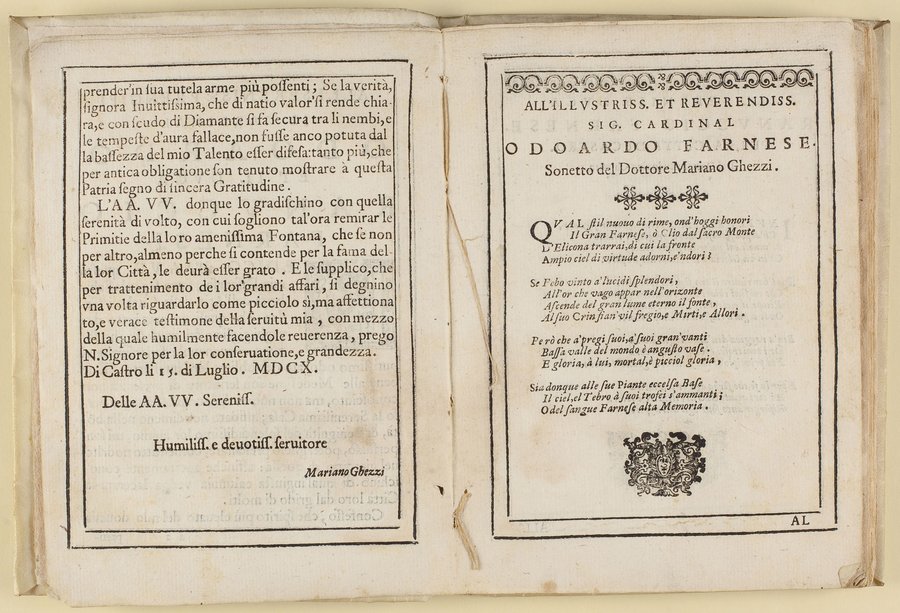 prender'in sua tutela arme più possenti; Se la verità,
signora Inuittissima, che di natio valor'si rende chia-
ra, e con scudo di Diamante si fa secura tra li nembi, e
le tempeste d'aura fallace, non fusse anco potuta dal
la bassezza del mio Talento esser difesa: tanto più, che
per antica obligatione son tenuto mostrare à questa
Patria segno di sincera Gratitudine.
L'AA. VV. donque lo gradischino con quella
serenità di volto, con cui sogliono tal'ora remirar le
Primitie della loro amenissima Fontana, che se non
per altro, almeno perche si contende per la fama del-
la lor Città, le deurà esser grato. E le supplico, che
per trattenimento de i lor'grandi affari, si degnino
vna volta riguardarlo come picciolo sì, ma affettiona
to, e verace testimone della seruitù mia, con mezzo
della quale humilmente facendole reuerenza, prego
N. Signore per la lor conseruatione, e grandezza.
Di Castro li 15. di Luglio. MDCX.
Delle AA. VV. Sereniss.
Humiliss. e deuotiss. seruitore
Mariano Ghezzi
ALL'ILLVSTRISS. ET REVERENDISS.
SIG. CARDINAL
ODOARDO FARNESE.
Sonetto del Dottore Mariano Ghezzi.
QVAL stil nuouo di rime, ond'hoggi honori
Il Gran Farnese, ò Clio dal sacro Monte
D'Elicona trarrai, di cui la fronte
Ampio ciel di virtude adorni, e'ndori?
Se Febo vinto a'lucidi splendori,
All'or che vago appar nell'orizonte
Ascende del gran lume eterno il fonte,
Al suo Crin sian'vil fregio, e Mirti, e Allori.
Però che a'pregi suoi, a'suoi gran'vanti
Bassa valle del mondo è angusto vase.
E gloria, à lui, mortal, è picciol gloria,
Sia donque alle sue Piante eccelsa Base
Il ciel, el Tebro à suoi trofei s'ammanti;
O del sangue Farnese alta Memoria.
AL